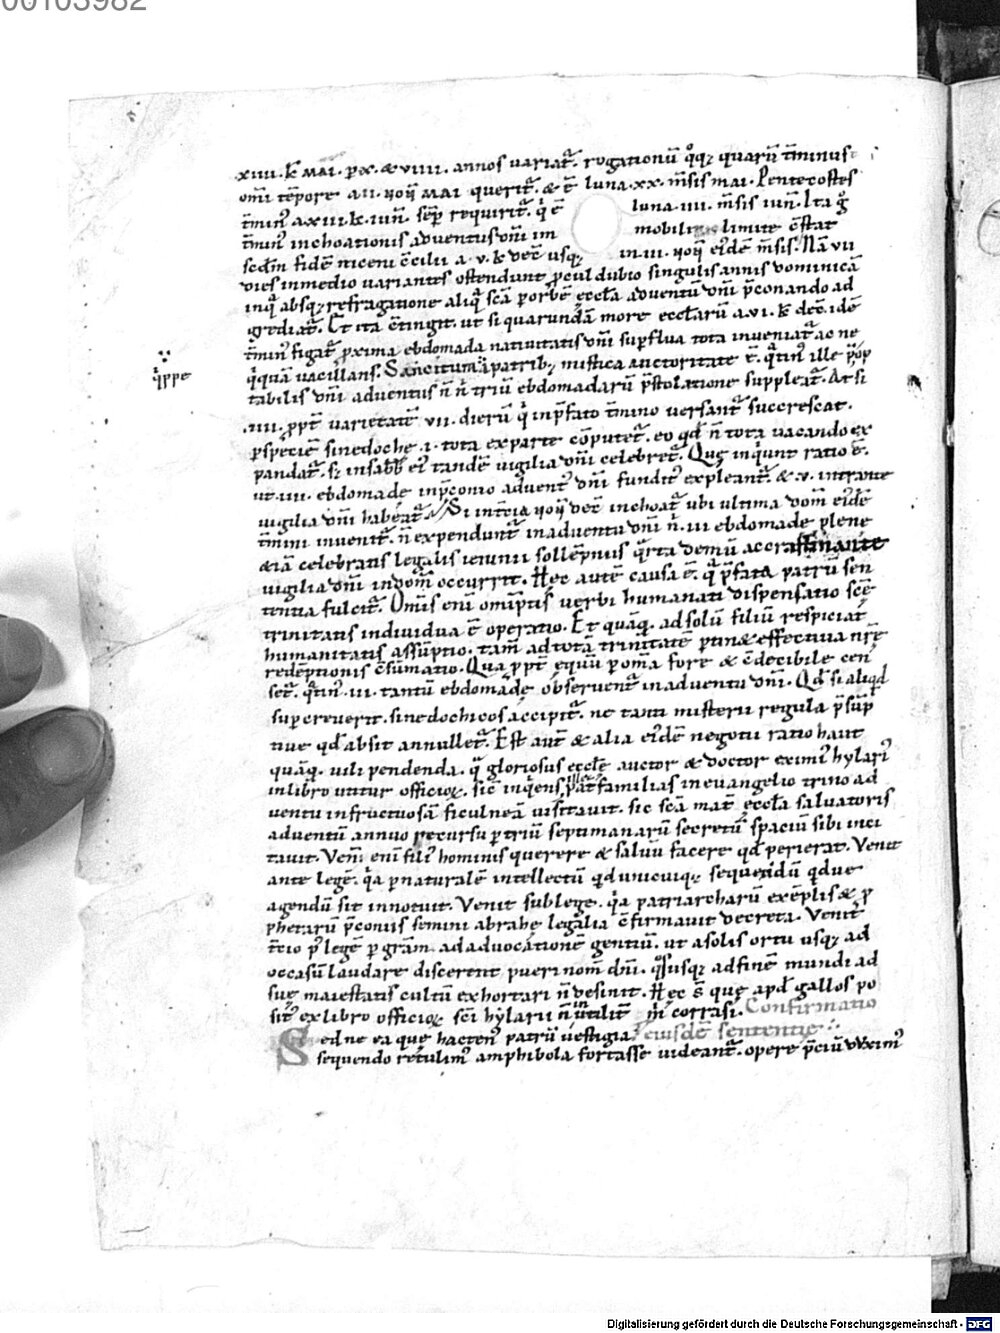 00103982
.xiiii. k̄ mai. p x. & viiii. annos uariat̄. rogationū q̊q; quarū t̄minus
om̄i tēpore a.ii. noñ mai querit̄. & ē luna .xx. m̄sis mai. Pentecostes
t̄min' a xiii. k. iun̄. sēp requirit̄. q̇ ē luna .iiii. m̄sis iun̄. Ita g̊
t̄min' inchoationis aduentus dn̄i in mobili limite c̄stat
scd̄m fidē niceni c̄cilii a .v. k decē. usq; in .iii. noñ eidē m̄sis. Nā vii
dies in medio uariantes ostendunt p̄cul dubio singulis annis dominicā
inq̇ absq; refragatione aliq̇ sc̄a p orbē eccl̄a aduentū dn̄i p̄conando ad
grediat̄. Et ita c̄tingit. ut si quarundā more eccl̄arū a .vi. k dec̄. idē
t̄min' figat̄. p̄xima ebdomada natiuitatis dn̄i sup̄flua tota inueniat̄ ac ne
q̇quā uacillans. Sancitum a patrib; mistica auctoritate ē. q̇tin' ille p̄op
q̇ppe
tabilis dn̄i aduentus n̄ n̄ triū ebdomadarū p̄stolatione suppleat̄. At si
.iiii. ppt̄ uarietatē vii. dierū q̇ in p̄fato t̄mino uersant̄ succrescat.
p speciē sinedoche .i. tota ex parte cōputet̄. eo qd̄ n̄ tota uacando ex
pandat̄. s; in sabb̄ ei' tandē uigilia dn̄i celebret̄. Quę inq̇unt ratio ē.
ut .iiii. ebdomade in p̄conio aduent' dn̄i fundit' expleant̄. & .v. intrante
uigilia dn̄i habeat̄. Si in t̄cia noñ dec̄ inchoat̄ ubi ultima dom̄ eidē
t̄mini inuenit̄. n̄ expendunt̄ in aduentu dn̄i n̄ .iii. ebdomade plene
& iā celebratis legalis ieiunii sollēpniis q̇rta demū accrastinante
uigilia dn̄i in dom̄ occurrit. Hec autē causa ē. q̇ p̄fata patrū sen
tentia fulcit̄. Om̄is eni omp̄tis uerbi humanati dispensatio scē
trinitatis indiuidua ē operatio. Et quāq; ad solū filiū respiciat
humanitatis assūptio. tam̄ ad totā trinitatē ptin& effectiua nr̄ē
redēptionis c̄sūmatio. Qua ppt̄ equū p om̄a fore & c̄decibile cen
set̄. q̇tin' .iii. tantū ebdomade obseruent̄ in aduentu dn̄i. Qd̄ si aliq̇d
supercreuerit. sinedochicos accipit̄. ne tanti misterii regula p̄sūp
tiue qd̄ absit annullet̄. Est aut̄ & alia eidē negotii ratio haut
quāq; uili pendenda. q̇ gloriosus ecclē auctor & doctor eximi' hylari'
in libro utitur officioꝝ. sic̄ inq̇ens ille pat̄familias in euangelio trino ad
uentu infructuosā ficulneā uisitauit. sic sc̄a mat̄ eccl̄a saluatoris
aduentū annuo recursu p triū septimanarū secretū spaciū sibi inci
tauit. Ven̄ eni fili' hominis querere & saluū facere qd̄ perierat. Venit
ante legē. q̇a p naturalē intellectū qd unicuiq; sequendū q̇d ue
agendū sit innotuit. Venit sub lege. q̇a patriarcharū exēplis & p
phetarū p̄coniis semini abrahe legalia c̄firmauit decreta. Venit
t̄cio p' legē p grām ad aduocationē gentiū. ut a solis ortu usq; ad
occasū laudare discerent pueri nom̄ dn̄i. q̊ususq; ad finē mundi ad
suę maiestatis cultū exhortari n̄ desinit. Hec s̄ quę apd̄ gallos po
sit' ex libro officioꝝ sc̄i hylarii n̄ in utilit̄ m̄ corrasi. Confirmatio
Sed ne ea quę hacten' patrū uestigia eiusdē sententię
sequendo retulim' amphibola fortasse uideant̄. opere p̄ciū duxim'
Digitalisierung gefördert durch die Deutsche Forschungsgemeinschaft - DFG